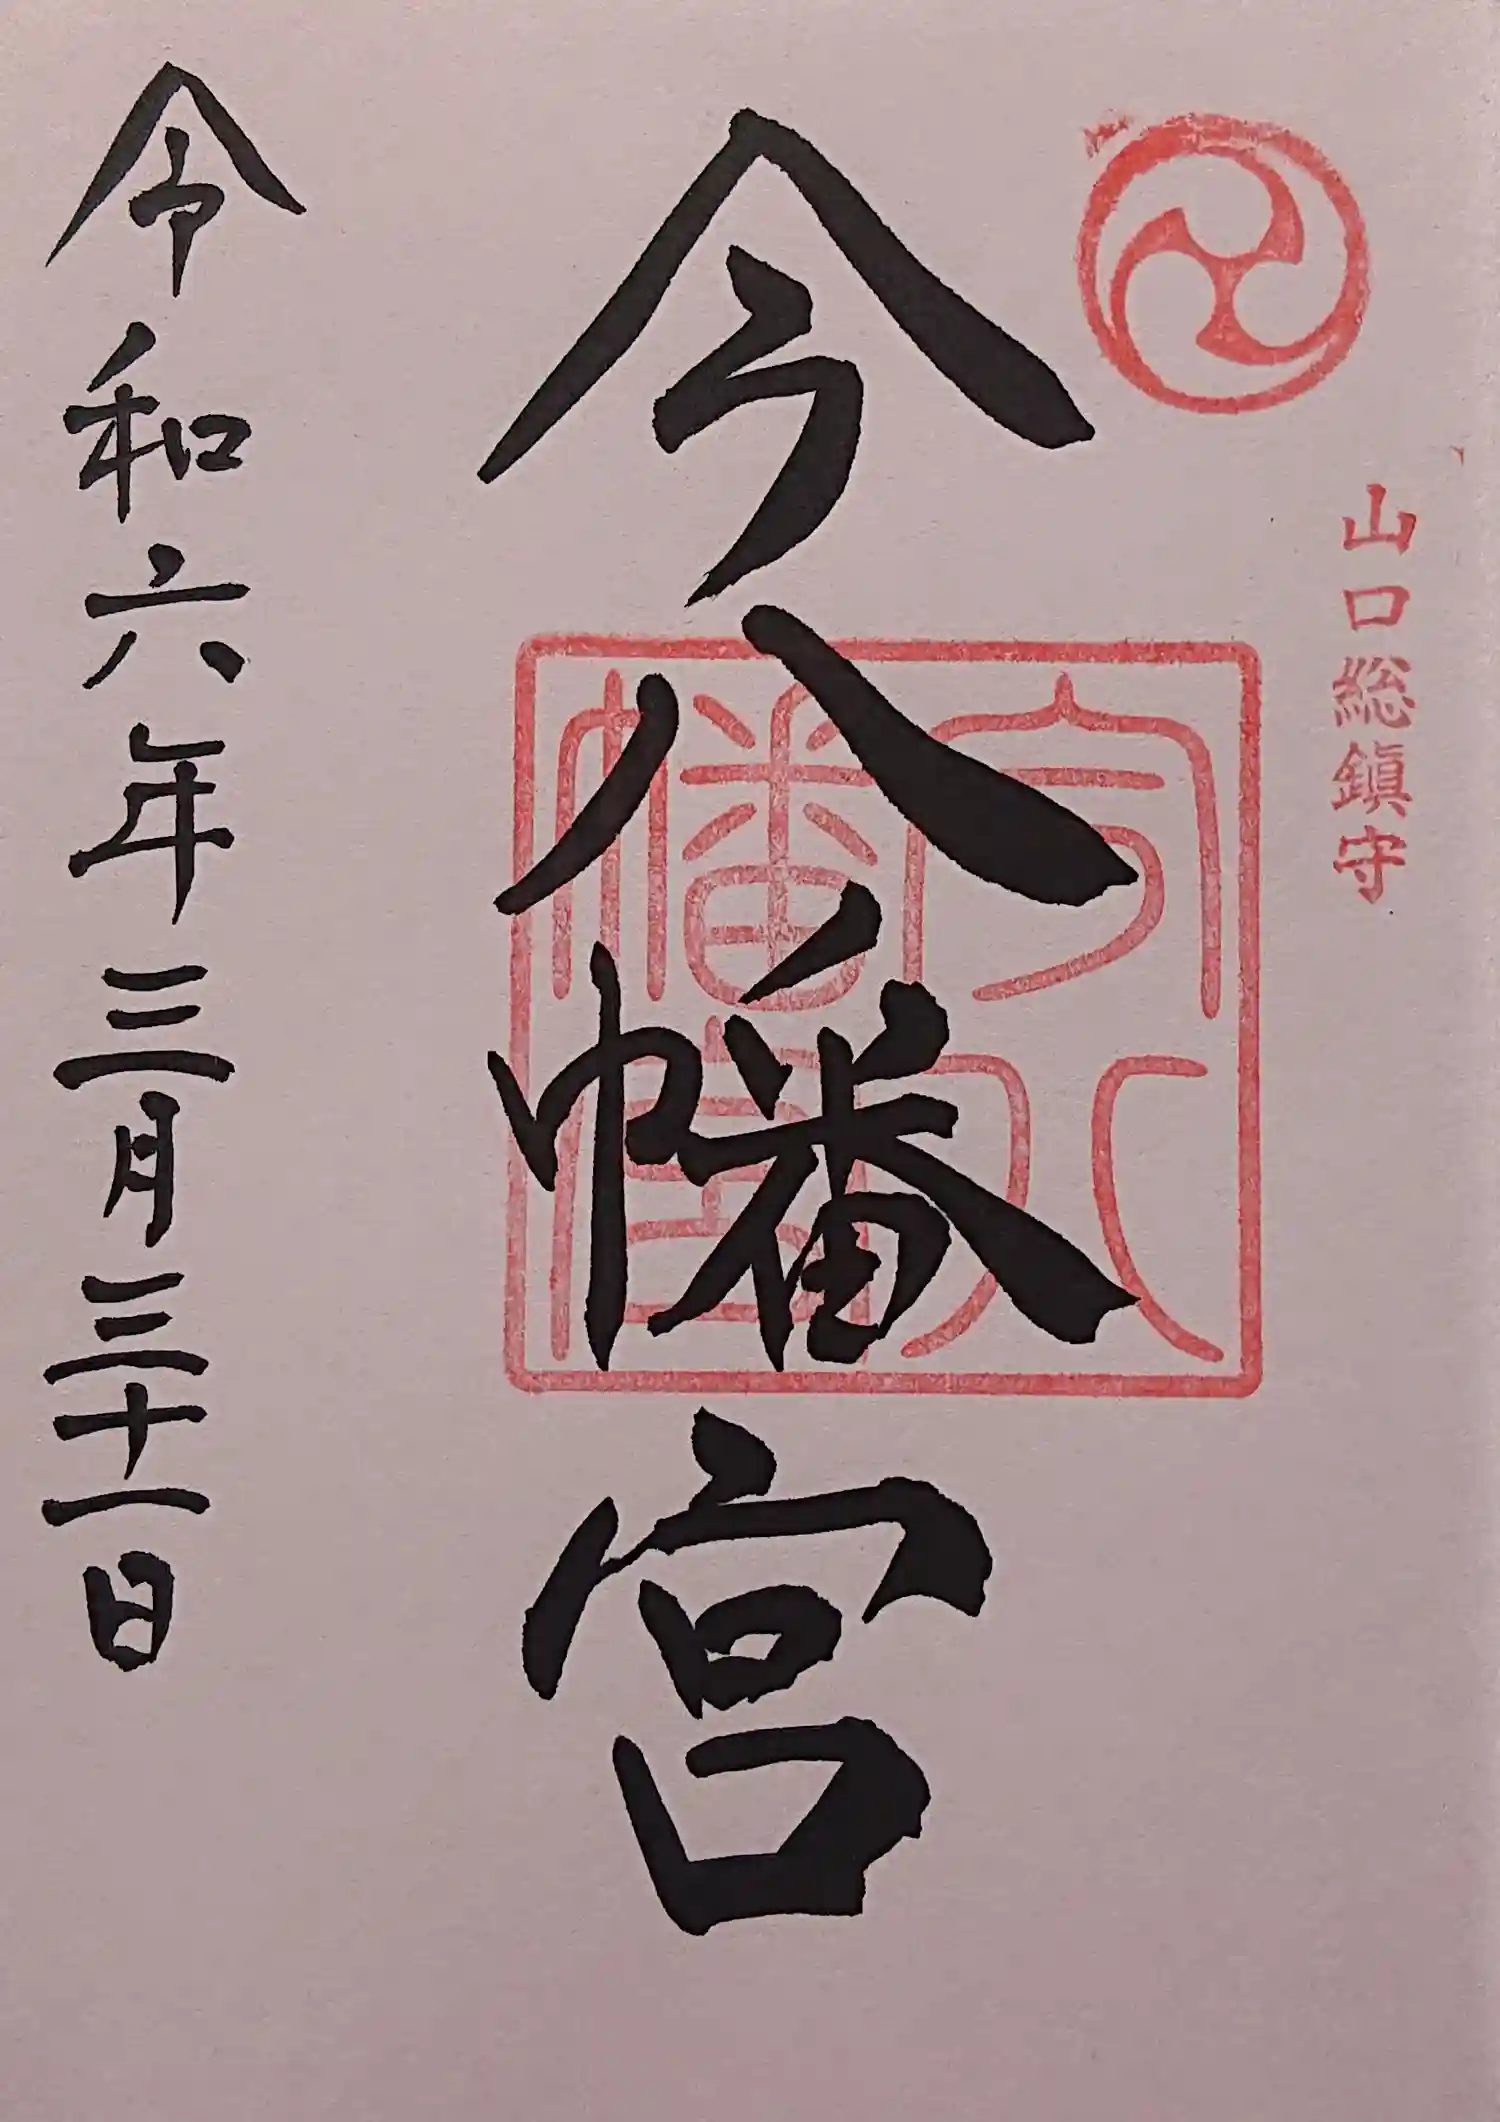 山口総鎮守
今八幡宮
今八
幡宮
令和六年三月三十一日